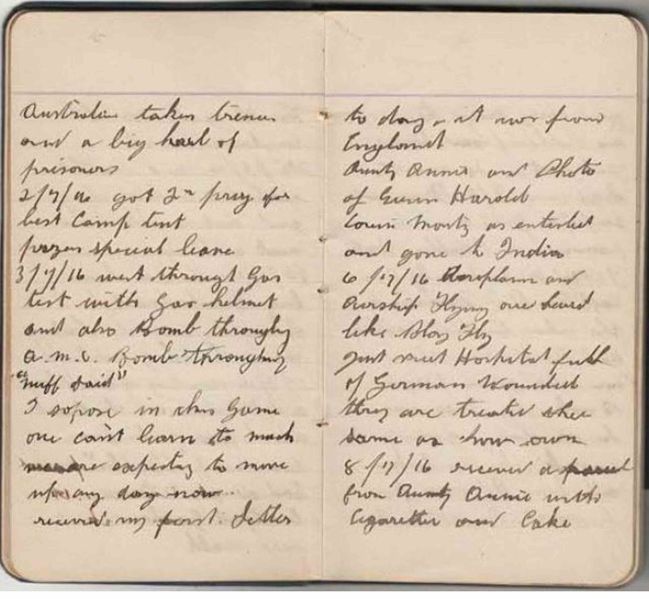 Australia takes trences
and a big haul of
prisoners
2/7/16 got 2nd prize for
best Camp tent
prizes special leave
3/7/16 went through Gas
test with Gas helmet
and also Bomb throughing
A.M.C. Bomb throughing
"nuff said"
I sopose in this Game
one cant learn to much
are expecting to move
up any day now
received my first Letter
to day it was from
England
Aunty Annie and Photo
of Cusin Harold
Cousin Monty as enlisted
and gone to India
6/7/16 Aeroplane and
Airship flying over head
like Blow Fly
Just next Hospital full
of German Wounded
they are treated the
same as how own
8/7/16 receved a parcel
from Aunty Annie with
Cigarettes and Cake